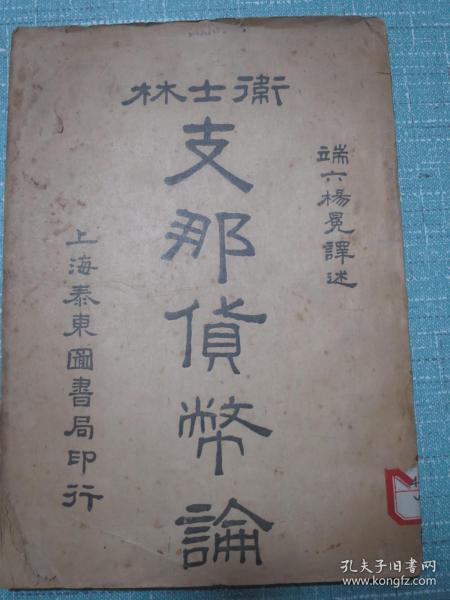 衞士林
支那貨幣論
端六楊冕譯述
上海泰東圖書局印行
孔夫子旧书网
www.kongfz.com